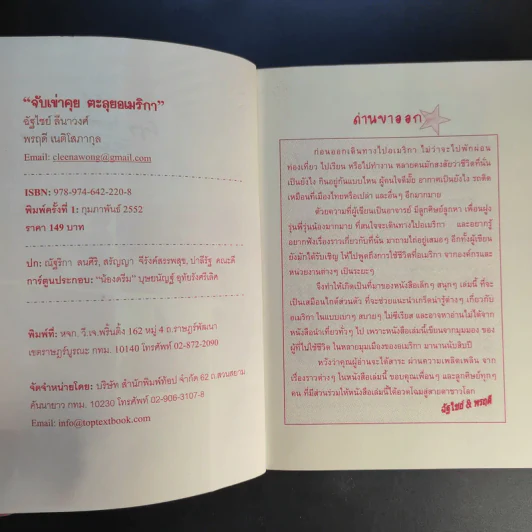 “จับเข่าคุย ตะลุยอเมริกา”
ฉัฐไชย์ ลีนาวงศ์
พรฤดี เนติโสภากุล
Email: cleenawong@gmail.com
ISBN: 978-974-642-220-8
พิมพ์ครั้งที่ 1: กุมภาพันธ์ 2552
ราคา 149 บาท
ปก: ณัฐริกา ลนศิริ, สรัญญา จีรังค์สรรพสุข, ปาลีรัฐ คณะดี
การ์ตูนประกอบ: “น้องครีม” บุษยนัญฐ์ อุทัยรังศรีเลิศ
พิมพ์ที่: หจก. วี.เจ.พริ้นติ้ง 162 หมู่ 4 ถ.ราษฎร์พัฒนา
เขตราษฎร์บูรณะ กทม. 10140 โทรศัพท์ 02-872-2090
จัดจำหน่ายโดย: บริษัท สำนักพิมพ์ท้อป จำกัด 62 ถ.สวนสยาม
คันนายาว กทม. 10230 โทรศัพท์ 02-906-3107-8
Email: info@toptextbook.com
ด่านขาออก
ก่อนออกเดินทางไปอเมริกา ไม่ว่าจะไปพักผ่อน
ท่องเที่ยว ไปเรียน หรือไปทำงาน หลายคนมักสงสัยว่าชีวิตที่นั่น
เป็นยังไง กินอยู่กันแบบไหน ผู้คนใจดีมั้ย อากาศเป็นยังไง รถติด
เหมือนที่เมืองไทยหรือเปล่า และอื่นๆ อีกมากมาย
ด้วยความที่ผู้เขียนเป็นอาจารย์ มีลูกศิษย์ลูกหา เพื่อนฝูง
รุ่นพี่รุ่นน้องมากมาย ที่สนใจจะเดินทางไปอเมริกา และอยากรู้
อยากฟังเรื่องราวเกี่ยวกับที่นั่น มาถามไถ่อยู่เสมอๆ อีกทั้งผู้เขียน
ยังมักได้รับเชิญ ให้ไปพูดถึงการใช้ชีวิตที่อเมริกา จากองค์กรและ
หน่วยงานต่างๆ เป็นระยะๆ
จึงทำให้เกิดเป็นที่มาของหนังสือเล็กๆ สนุกๆ เล่มนี้ ที่จะ
เป็นเสมือนไกด์ส่วนตัว ที่จะช่วยแนะนำเกร็ดน่ารู้ต่างๆ เกี่ยวกับ
อเมริกา ในแบบเบาๆ สบายๆ ไม่ซีเรียส และอาจหาอ่านไม่ได้จาก
หนังสือนำเที่ยวทั่วๆ ไป เพราะหนังสือเล่มนี้เขียนจากมุมมอง ของ
ผู้ที่ไปใช้ชีวิต ในหลายมุมเมืองของอเมริกา มานานนับสิบปี
หวังว่าคุณผู้อ่านจะได้สาระ ผ่านความเพลิดเพลิน จาก
เรื่องราวต่างๆ ในหนังสือเล่มนี้ ขอบคุณเพื่อนๆ และลูกศิษย์ทุกๆ
คน ที่มีส่วนร่วมให้หนังสือเล่มนี้ได้อวดโฉมสู่สายตาชาวโลก
ฉัฐไชย์ & พรฤดี